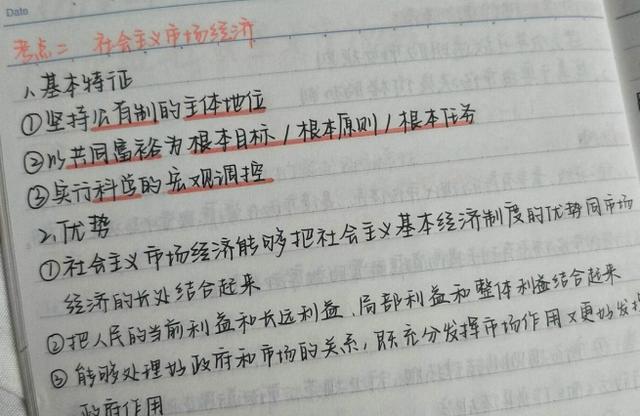 Date
考点二 社会主义市场经济
1、基本特征
①坚持公有制的主体地位
②以共同富裕为根本目标/根本原则/根本任务
③实行科学的宏观调控
2、优势
①社会主义市场经济能够把社会主义基本经济制度的优势同市场
经济的长处结合起来
②把人民的当前利益和长远利益、局部利益和整体利益结合起来
③能够处理好政府和市场的关系,既充分发挥市场作用又更好发挥
政府作用